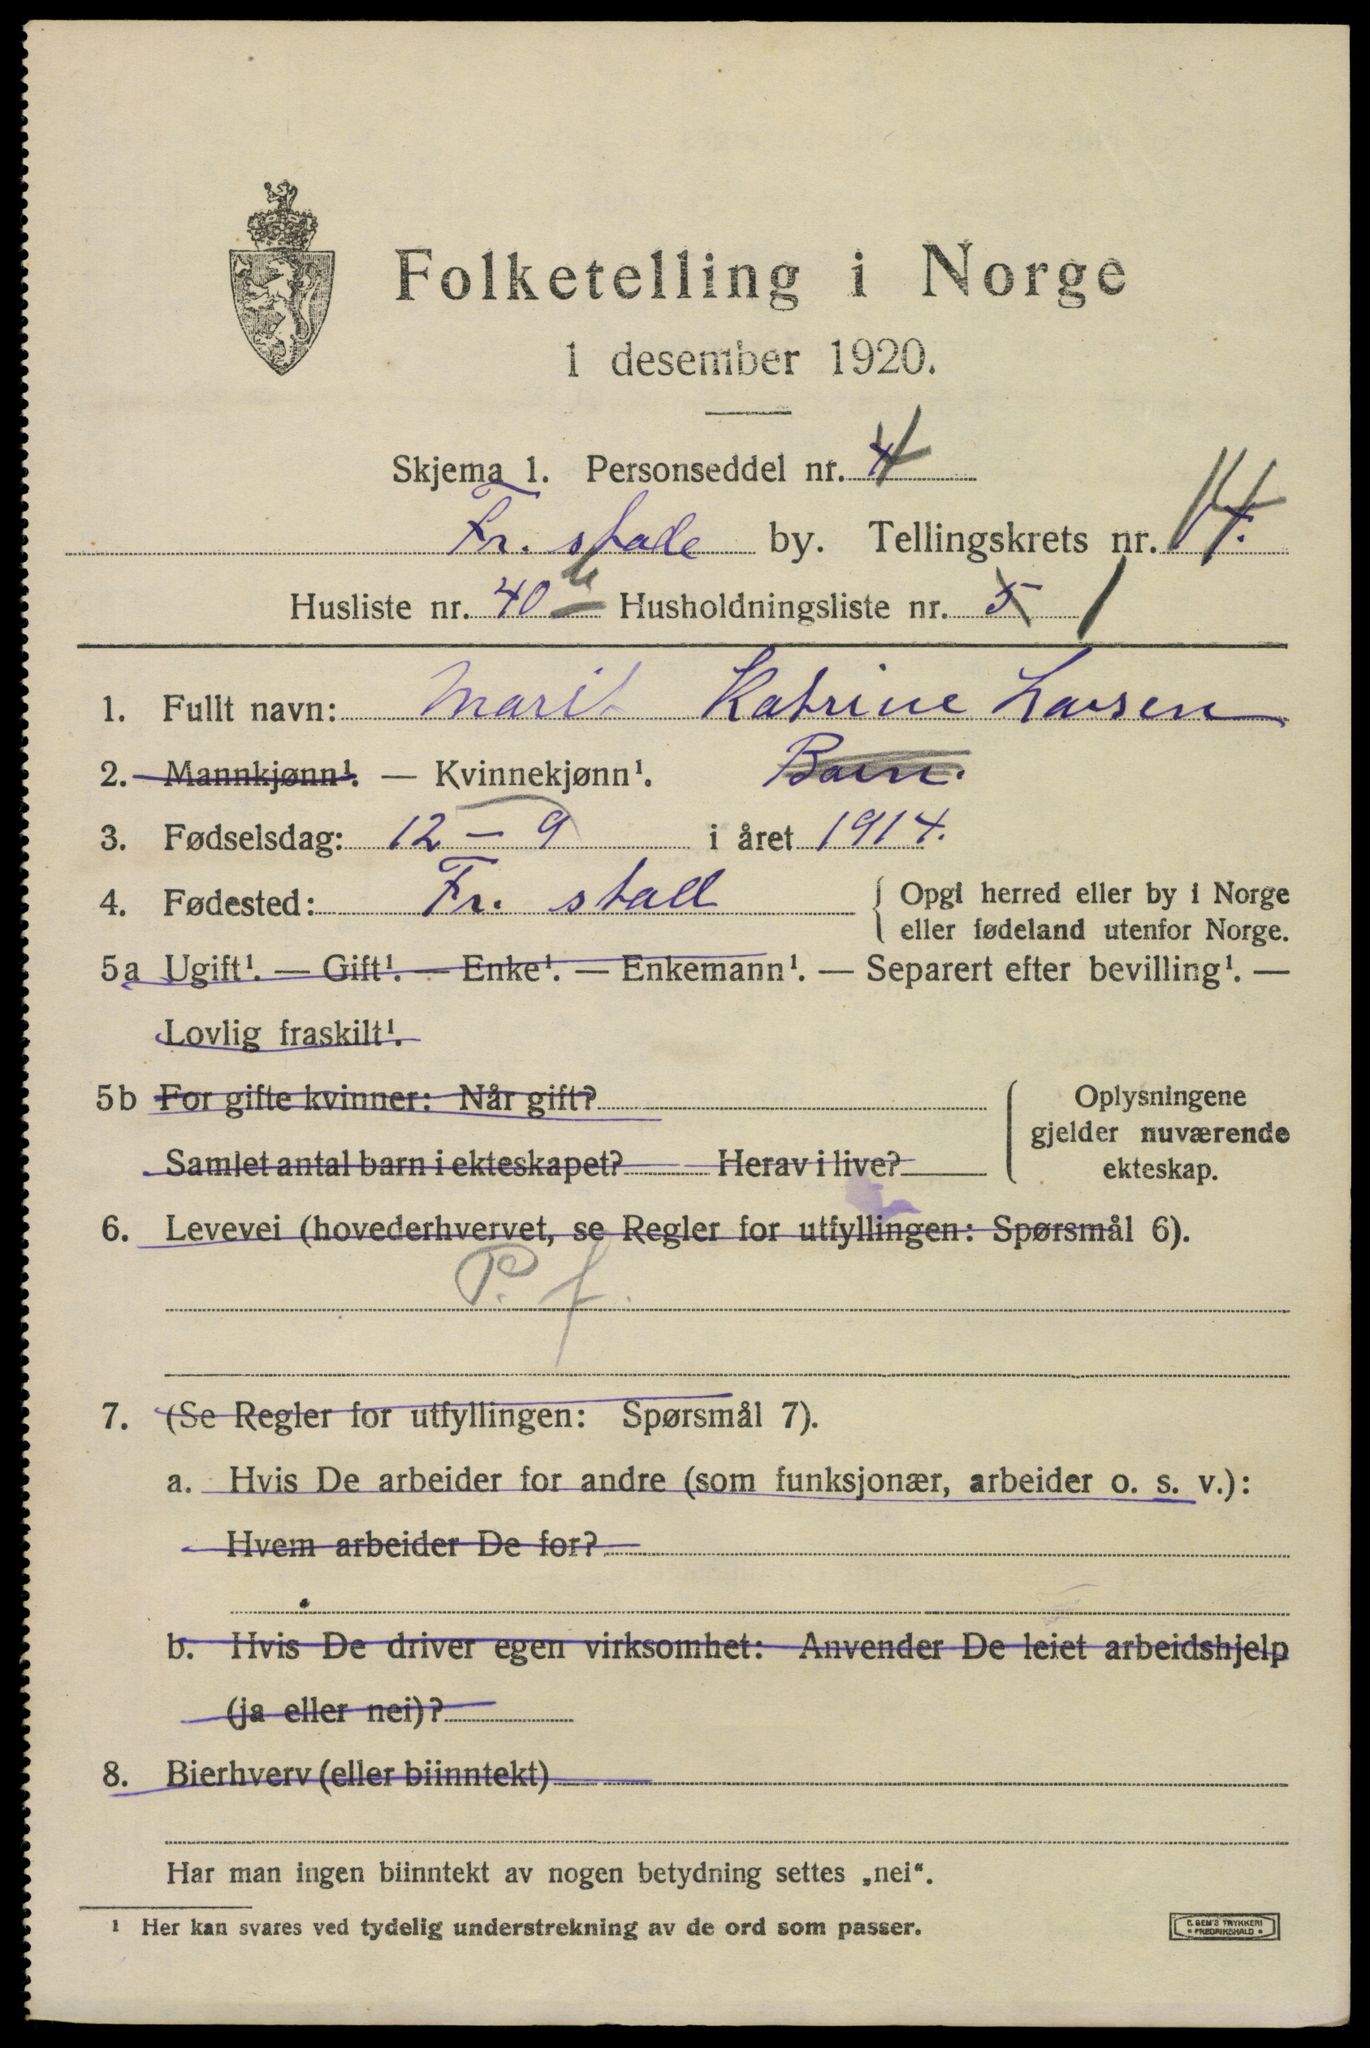 Folketelling i Norge
1 desember 1920.
Skjema 1. Personseddel nr. 4
Fr. stad by. Tellingskrets nr. 14.
Husliste nr. 40 b Husholdningsliste nr. 5 1
1. Fullt navn: Marit Katrine Larsen
2. Mannkjønn¹. — Kvinnekjønn¹. Barn.
3. Fødselsdag: 12 — 9 i året 1914.
4. Fødested: Fr. stad { Opgi herred eller by i Norge
eller fødeland utenfor Norge.
5a Ugift¹. — Gift¹. — Enke¹. — Enkemann¹. — Separert efter bevilling¹. —
Lovlig fraskilt¹.
5b For gifte kvinner: Når gift? ( Oplysningene
gjelder nuværende
Samlet antal barn i ekteskapet? Herav i live? ekteskap.
6. Levevei (hovederhvervet, se Regler for utfyllingen: Spørsmål 6).
P. f.
7. (Se Regler for utfyllingen: Spørsmål 7).
a. Hvis De arbeider for andre (som funksjonær, arbeider o. s. v.):
Hvem arbeider De for?
b. Hvis De driver egen virksomhet: Anvender De leiet arbeidshjelp
(ja eller nei)?
8. Bierhverv (eller biinntekt)
Har man ingen biinntekt av nogen betydning settes „nei“.
¹ Her kan svares ved tydelig understrekning av de ord som passer.
E. SEM'S TRYKKERI
• FREDRIKSHALD •